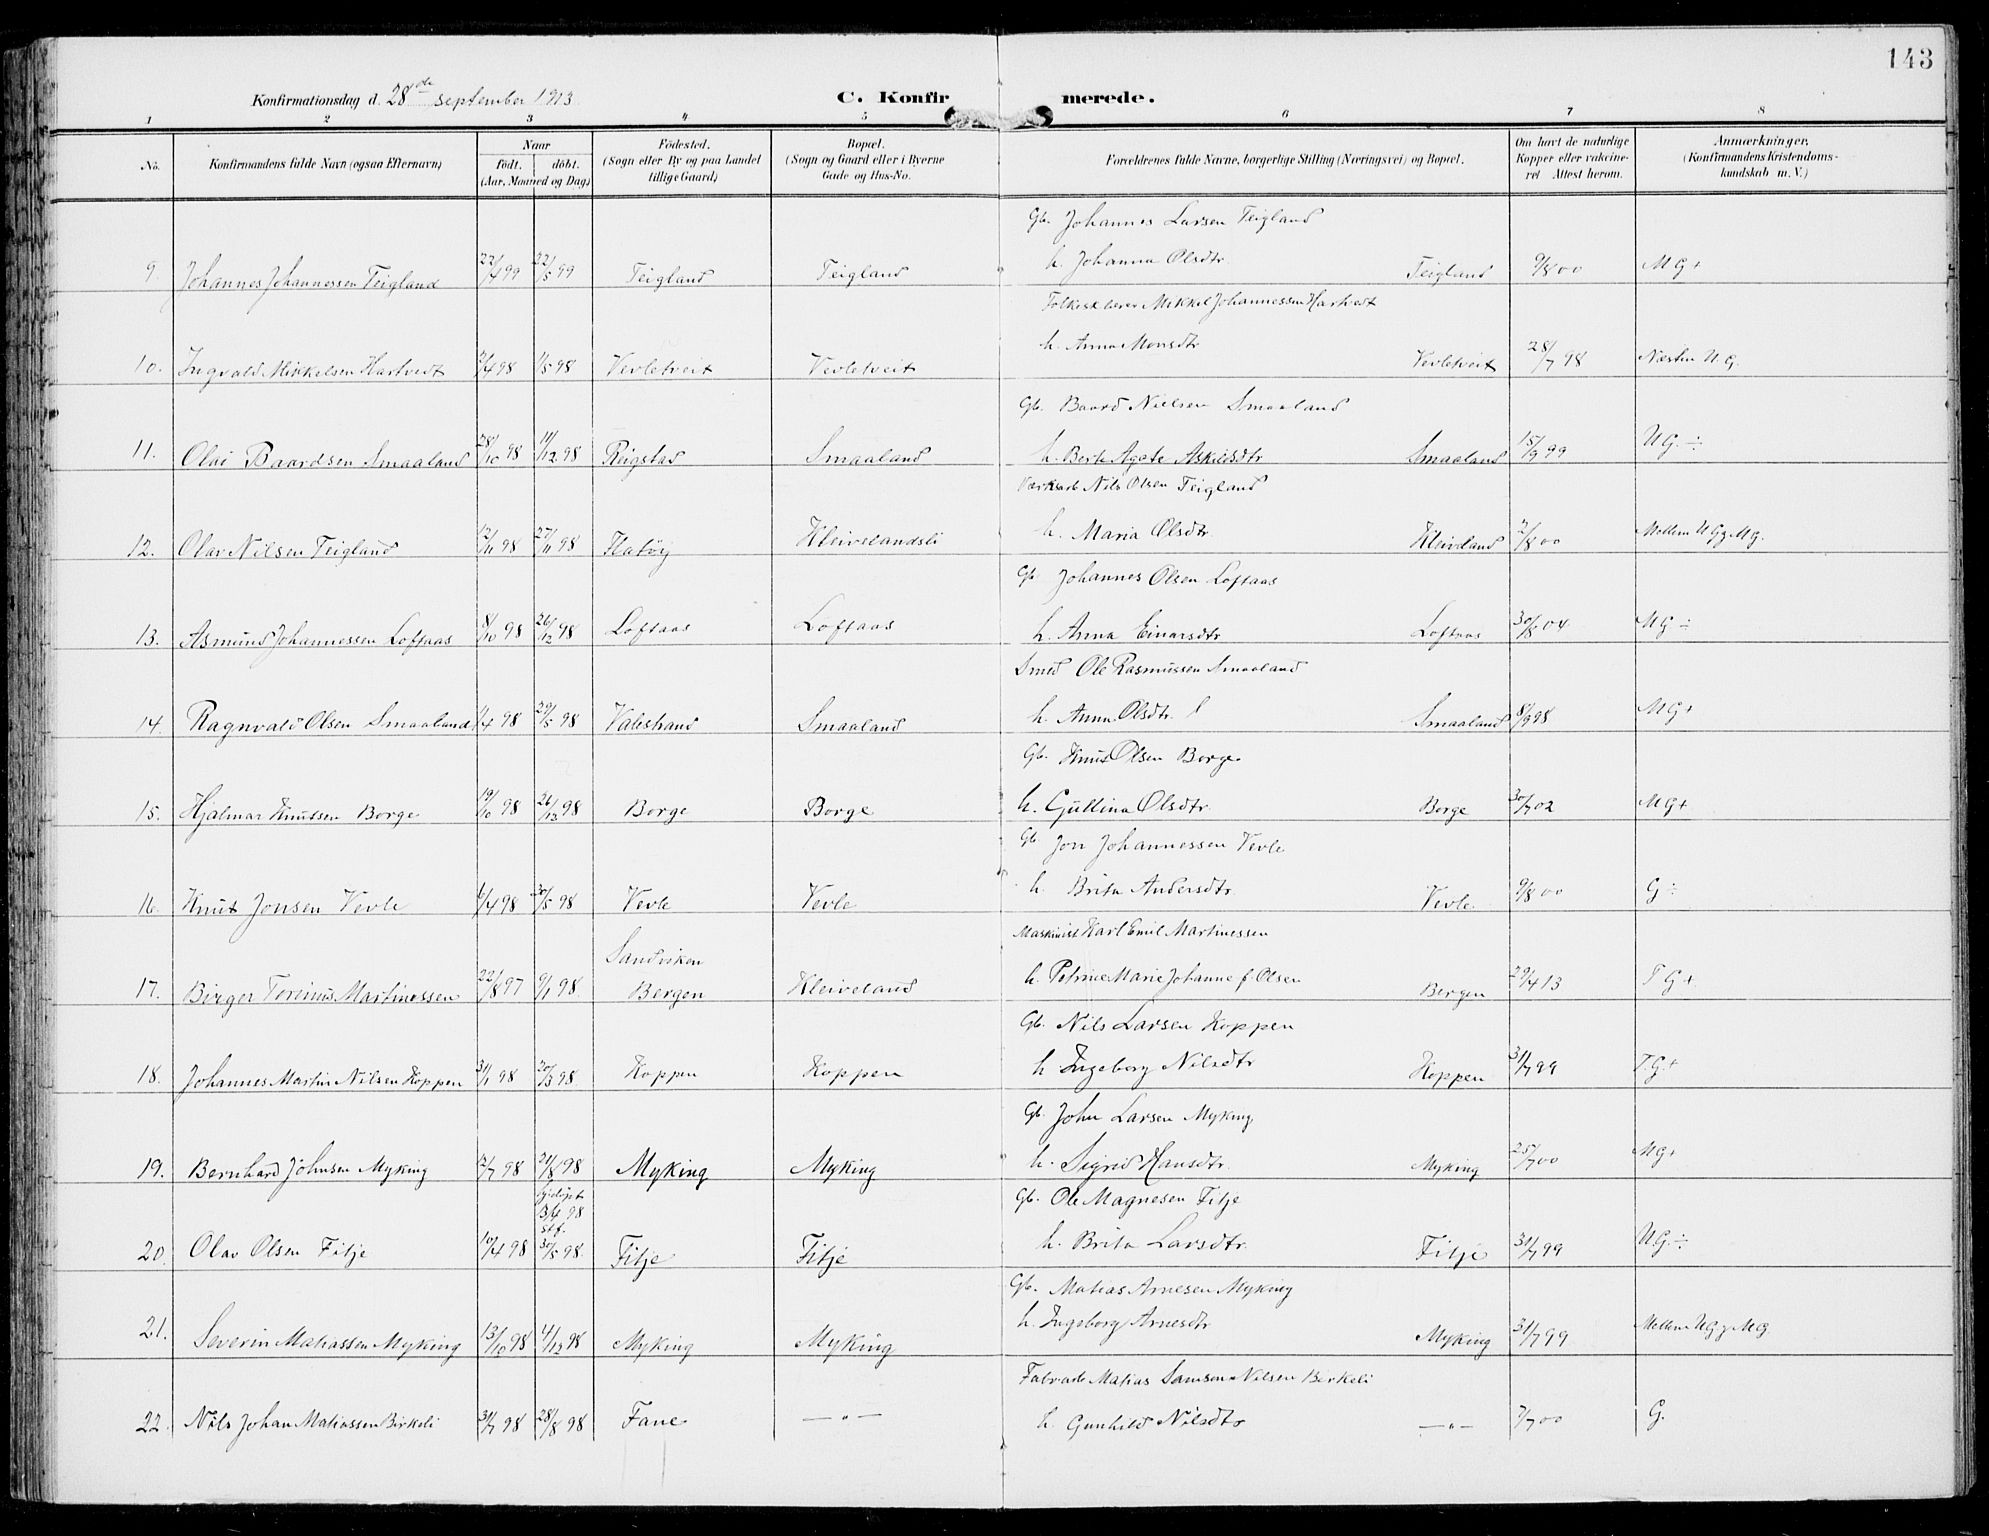 143
Konfirmationsdag d. 28de september 1913.
C. Konfirmerede.
1 2 3 4 5 6 7 8
No. Konfirmandens fulde Navn (ogsaa Efternavn) Naar født. døbt. (Aar, Maaned og Dag) Fødested. (Sogn eller By og paa Landet tillige Gaard) Bopæl. (Sogn og Gaard eller i Byerne Gade og Hus-No. Forældrenes fulde Navne, borgerlige Stilling (Næringsvei) og Bopæl. Om havt de naturlige Kopper eller vakcineret Attest herom. Anmærkninger. (Konfirmandens Kristendomskundskab m. V.)
Gb. Johannes Larsen Teigland
9. Johannes Johannessen Teigland 22/4 99 22/5 99 Teigland Teigland h. Johanna Olsdtr. Teigland 9/8 00 MG+
Folkesk.lærer Mikkel Johannessen Hartvedt
10. Ingvald Mikkelsen Hartvedt 2/4 98 1/5 98 Vevletveit Vevletveit h. Anna Monsdtr. Vevletveit 28/7 98 Næsten M.G.
Gb. Baard Nielsen Smaaland
11. Olai Baardsen Smaaland 28/10 98 11/12 98 Reigstad Smaaland h. Berte Agate Askildsdtr Smaaland 15/9 99 MG. ÷
Værksarb Nils Olsen Teigland
12. Olav Nilsen Teigland 12/11 98 27/11 98 Flatøy Kleivelandsli h. Maria Olsdtr. Kleiveland 2/8 00 Mellem MG & MG.
Gb. Johannes Olsen Loftaas
13. Asmund Johannessen Loftaas 8/10 98 26/12 98 Loftaas Loftaas h. Anna Einarsdtr Loftaas 30/8 04 MG ÷
Smed Ole Rasmussen Smaaland
14. Ragnvald Olsen Smaaland 1/4 98 29/5 98 Valestrand Smaaland h. Anna Olsdtr. Smaaland 8/9 98 MG+
Gb. Knut Olsen Borge
15. Hjalmar Knutsen Borge 19/10 98 26/12 98 Borge Borge h. Gullina Olsdtr. Borge 30/7 02 MG+
Gb. Jon Johannessen Vevle
16. Knut Jonsen Vevle 6/4 98 30/5 98 Vevle Vevle h. Brita Andersdtr. Vevle 9/8 00 G ÷
Maskinist Karl Emil Martinessen
17. Birger Torinus Martinessen 22/8 97 9/1 98. Sandviken Bergen Kleiveland h. Petrine Marie Johanne f. Olsen Bergen 29/4 13 T G+
Gb. Nils Larsen Koppen
18. Johannes Martin Nilsen Koppen 31/1 98 20/3 98. Koppen Koppen h Ingeborg Nilsdtr Koppen 31/7 99 T.G.+
Gb. John Larsen Myking
19. Bernhard Johnsen Myking 2/7 98 21/8 98 Myking Myking h. Sigrid Hansdtr. Myking 25/7 00 MG+
Gb. Ole Magnesen Fitje
20. Olav Olsen Fitje 10/4 98 hjdøpt 13/4 98 stf. 30/5 98. Fitje Fitje h. Brita Larsdtr. Fitje 31/7 99 MG. ÷
Gb. Matias Arnesen Myking
21. Severin Matiassen Myking 13/10 98 4/12 98 Myking Myking h. Ingeborg Arnesdtr Myking 31/7 99 Mellem MG & MG.
Fabrarb Matias Samson Nilsen Birkeli
22. Nils Johan Matiassen Birkeli 31/7 98 28/8 98 Fane — " — h. Gunhild Nilsdtr — " — 7/7 00 G.